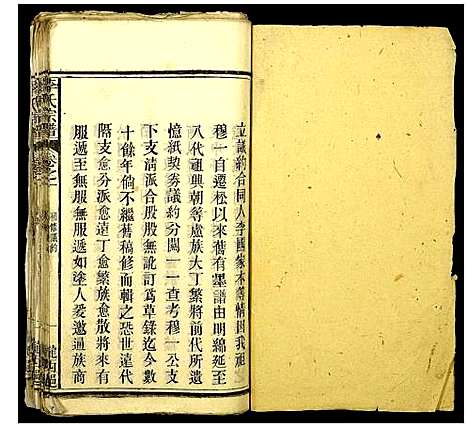 立議約合同人李國家本等情因我祖
穆一自遷松以來舊有墨譜由明綿延至
八代祖興朝等慮族大丁繁將前代所遺
憶紙契券議約分關一一查考穆一公支
下支清派合股股無訛訂爲草錄迄今數
十餘年倘不繼舊稿修而輯之恐世遠代
隔支愈分派愈遠丁愈繁族愈散將來有
服遞至無服無服遞如塗人爰邀通族商
李氏宗譜
卷之一